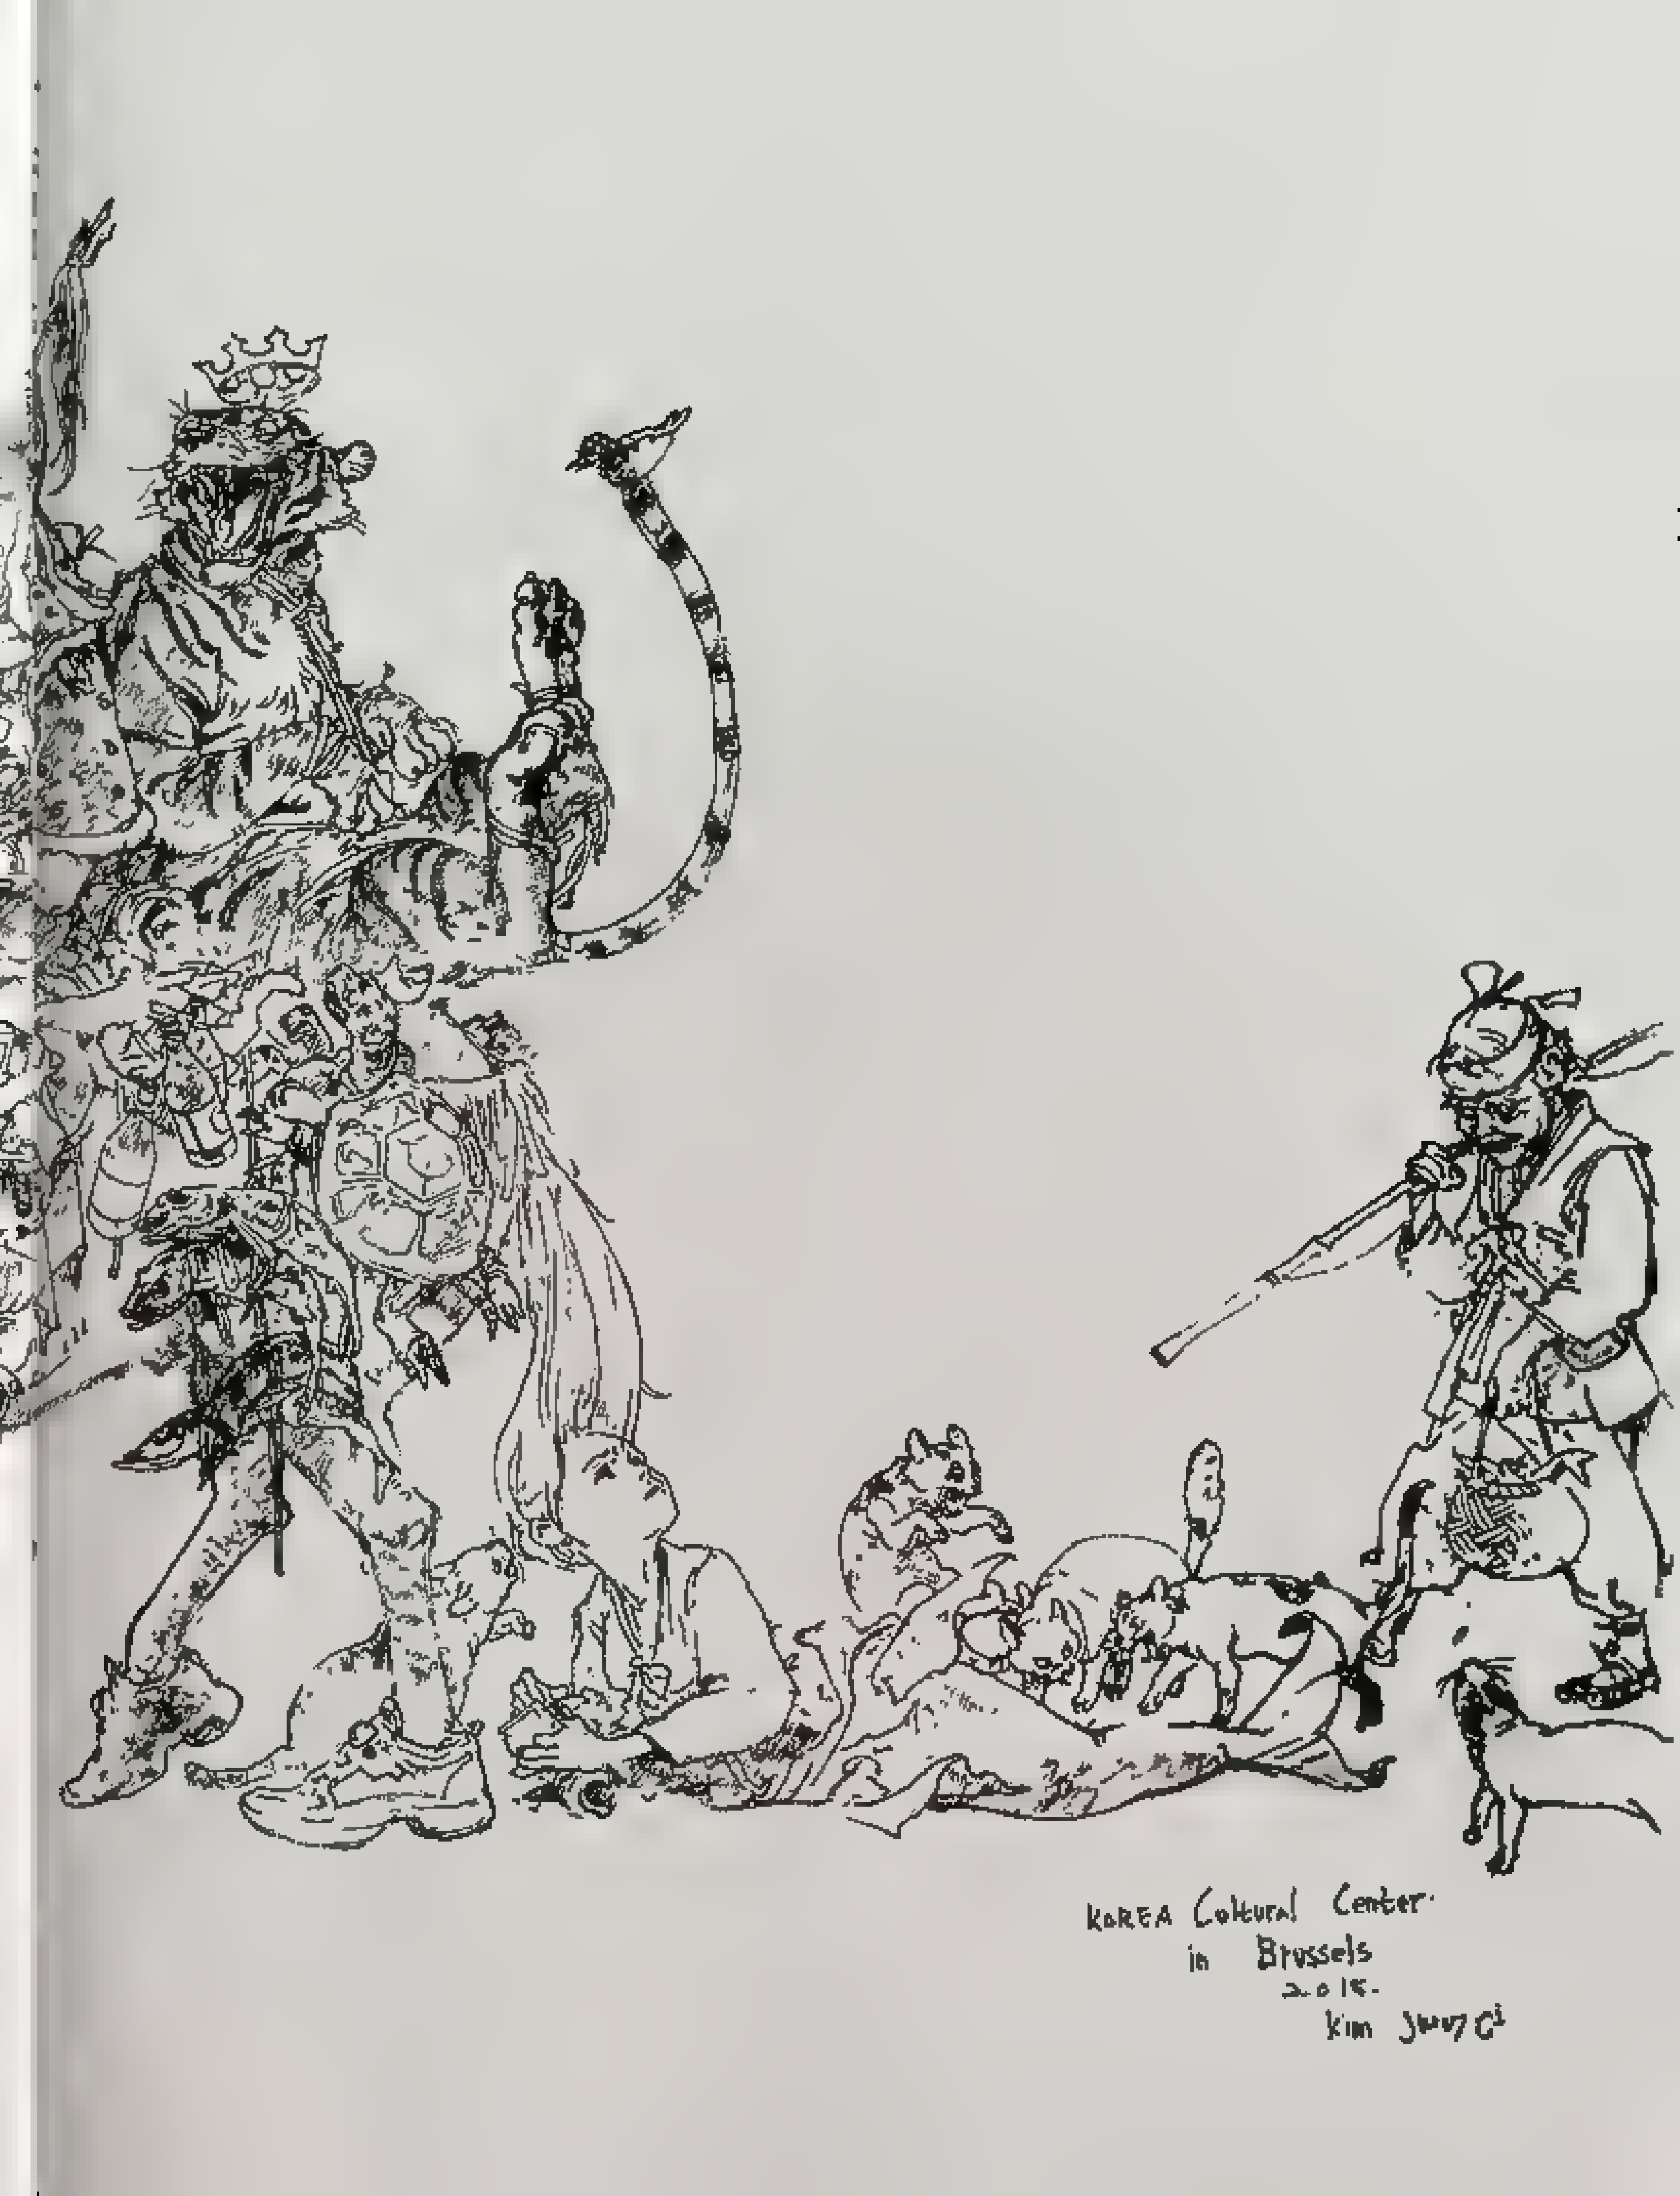 KOREA Coltural Center.
in Brussels
2015.
kim JUNG Gi